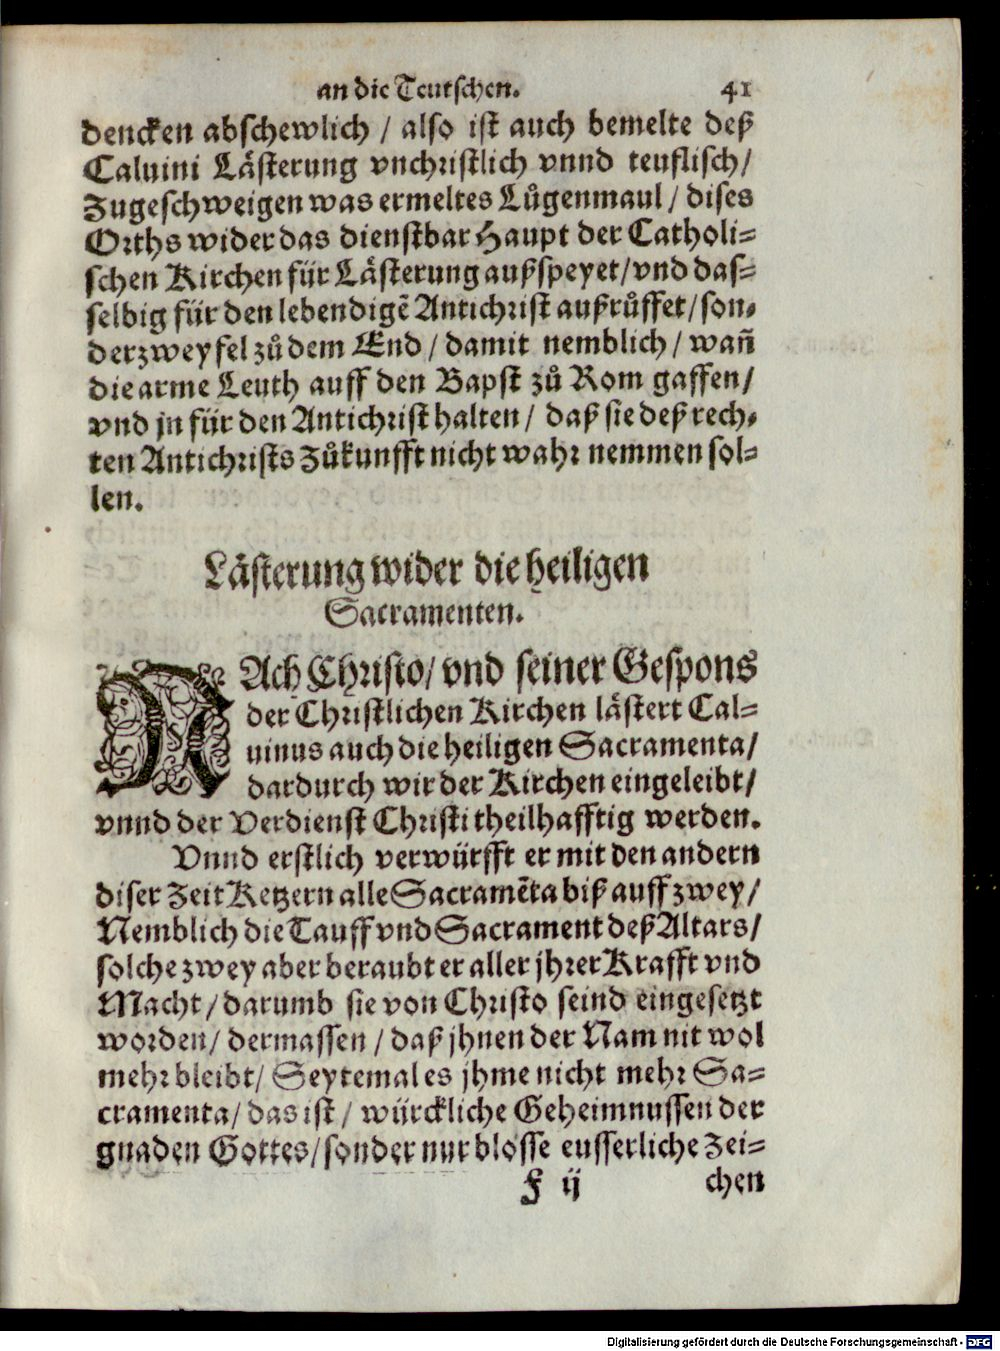 an die Teutschen. 41
dencken abschewlich / also ist auch bemelte deß
Caluini Lästerung vnchristlich vnnd teuflisch /
Zugeschweigen was ermeltes Lůgenmaul / dises
Orths wider das dienstbar Haupt der Catholi=
schen Kirchen für Lästerung außspeyet / vnd das=
selbig für den lebendigẽ Antichrist außrůffet / son=
der zweyfel zů dem End / damit nemblich / wañ
die arme Leuth auff den Bapst zů Rom gaffen /
vnd jn für den Antichrist halten / daß sie deß rech=
ten Antichrists Zůkunfft nicht wahr nemmen sol=
len.
Lästerung wider die heiligen
Sacramenten.
NAch Christo / vnd seiner Gespons
der Christlichen Kirchen lästert Cal=
uinus auch die heiligen Sacramenta /
dardurch wir der Kirchen eingeleibt /
vnnd der Verdienst Christi theilhafftig werden.
Vnnd erstlich verwürfft er mit den andern
diser Zeit Ketzern alle Sacramẽta biß auff zwey /
Nemblich die Tauff vnd Sacrament deß Altars /
solche zwey aber beraubt er aller jhrer Krafft vnd
Macht / darumb sie von Christo seind eingesetzt
worden / dermassen / daß jhnen der Nam nit wol
mehr bleibt / Seytemal es jhme nicht mehr Sa=
cramenta / das ist / würckliche Geheimnussen der
gnaden Gottes / sonder nur blosse eusserliche Zei=
F ij chen
Digitalisierung gefördert durch die Deutsche Forschungsgemeinschaft - DFG